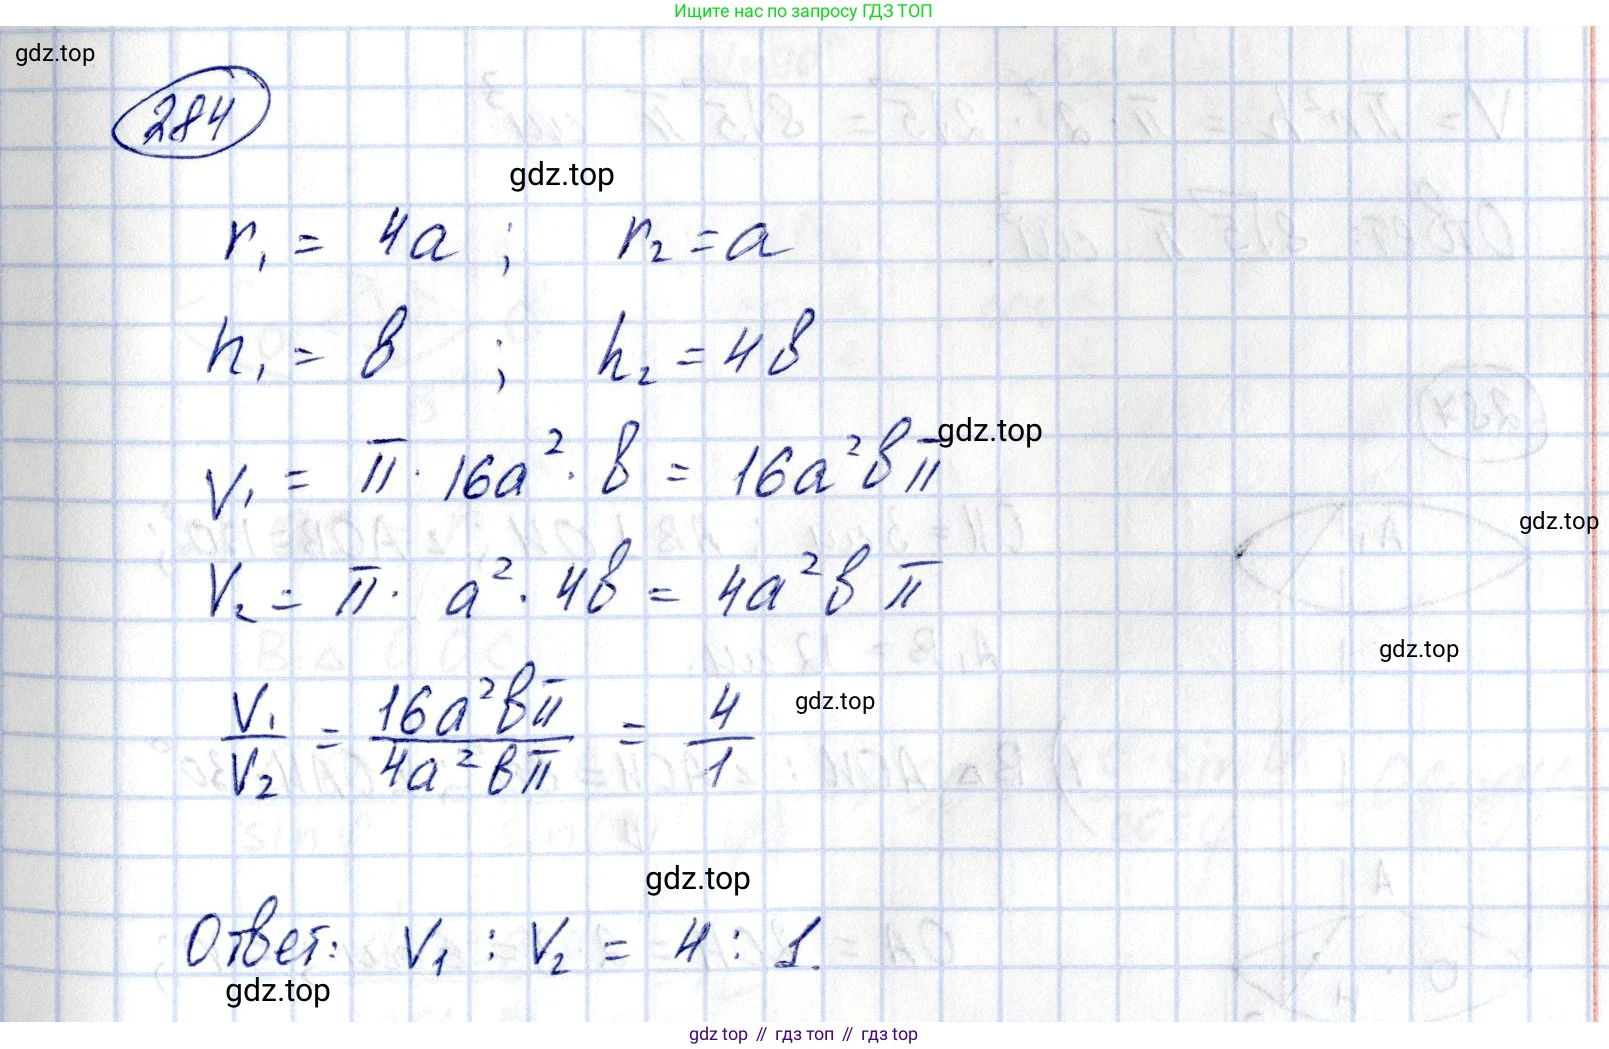 Ищите нас по запросу ГДЗ ТОП
gdz.top
284
gdz.top
r₁ = 4a ; r₂ = a
h₁ = в ; h₂ = 4в
gdz.top
V₁ = π · 16a² · в = 16a²вπ
gdz.top
V₂ = π · a² · 4в = 4a²в π
gdz.top
V₁/V₂ = 16a²вπ/4a²вπ = 4/1
gdz.top
gdz.top
Ответ: V₁ : V₂ = 4 : 1.
gdz.top
gdz top // гдз топ // гдз top